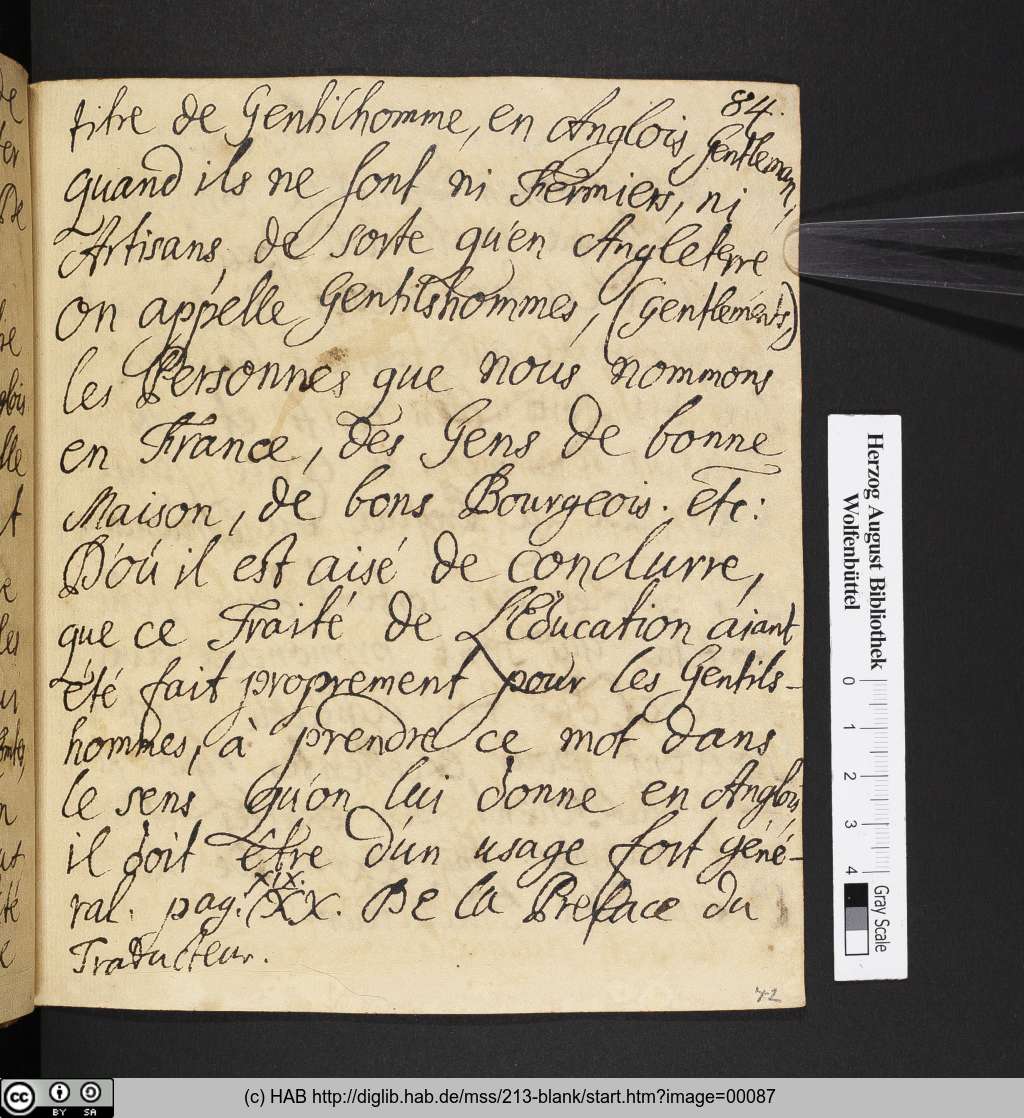 84.
titre de Gentilhomme, en Anglois, Gentleman,
quand ils ne sont ni Fermiers, ni
Artisans, de sorte qu'en Angleterre
on appelle Gentilshommes, (gentlements,)
les Personnes que nous nommons
en France, des Gens de bonne
Maison, de bons Bourgeois. etc:
D'où il est aisé de conclurre,
que ce Traité de L'Education aiant
été fait proprement pour les Gentils-
hommes, à prendre ce mot dans
le sens qu'on lui donne en Anglois
il doit être d'un usage fort géné-
ral. pag. XIX. XX. De la Preface du
Traducteur.
72
Herzog August Bibliothek
Wolfenbüttel
0 1 2 3 4
Gray Scale
(c) HAB http://diglib.hab.de/mss/213-blank/start.htm?image=00087
cc BY SA